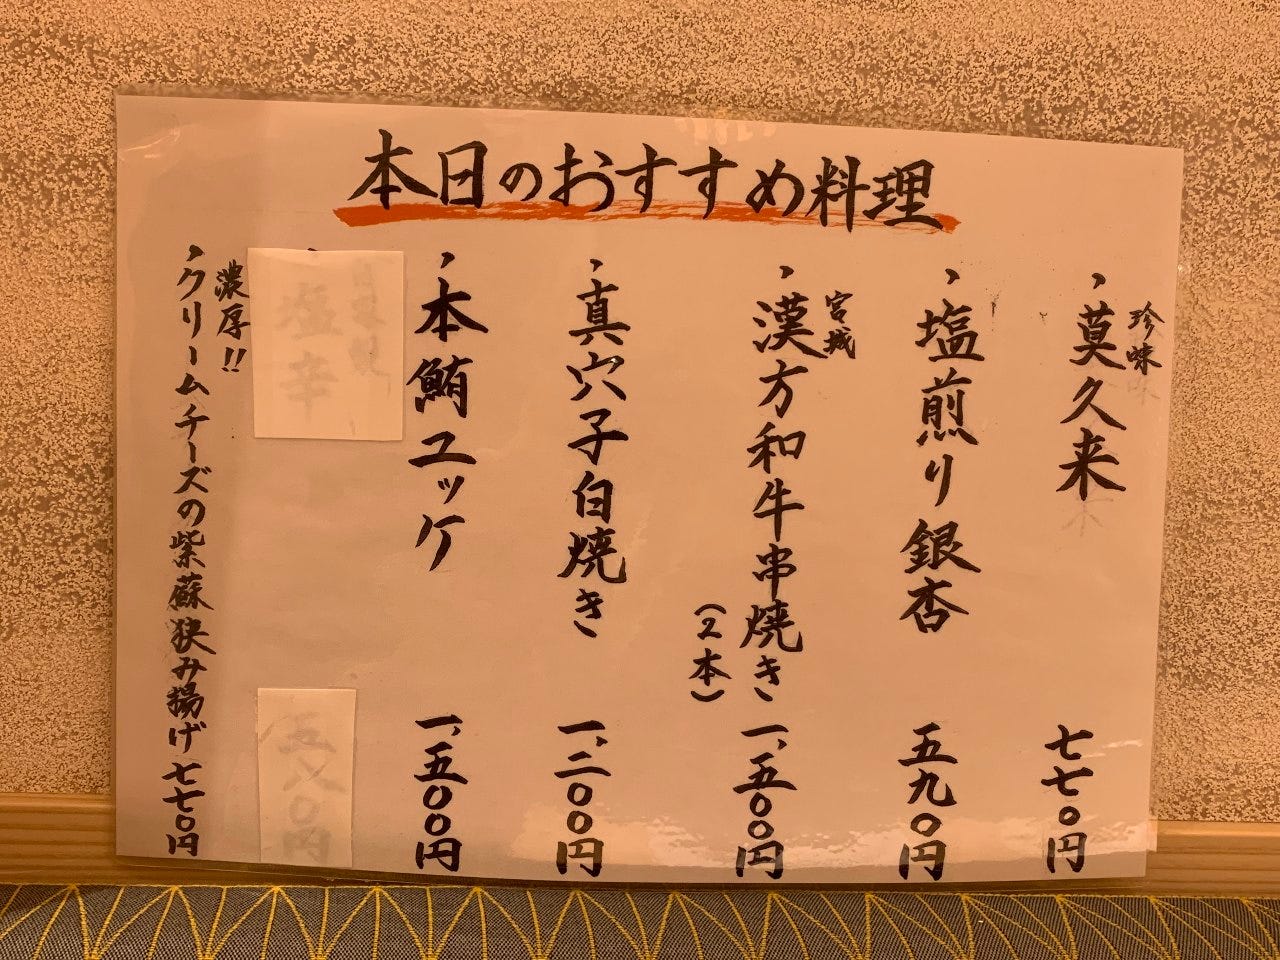 本日のおすすめ料理
珍味
・莫久来 七七〇円
・塩煎り銀杏 五九〇円
宮城
・漢方和牛串焼き 一、五〇〇円
(2本)
・真穴子白焼き 一、二〇〇円
・本鮪ユッケ 一、五〇〇円
塩辛 五八〇円
濃厚!!
・クリームチーズの紫蘇狭み揚げ 七七〇円